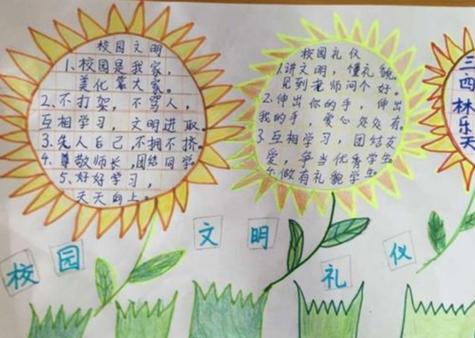 校园文明
1、校园是我家，
美化靠大家。
2、不打架，不骂人，
互相学习，文明进取。
3、先人后己，不拥不挤。
4、尊敬师长，团结同学
5、好好学习，
天天向上。
校园礼仪
1、讲文明，懂礼貌，
见到老师问个好。
2、伸出你的手，伸出
我的手，爱心处处有。
3、互相学习，团结友
爱，争当优秀学生
4、做有礼貌学生
三
四
校园文明礼仪